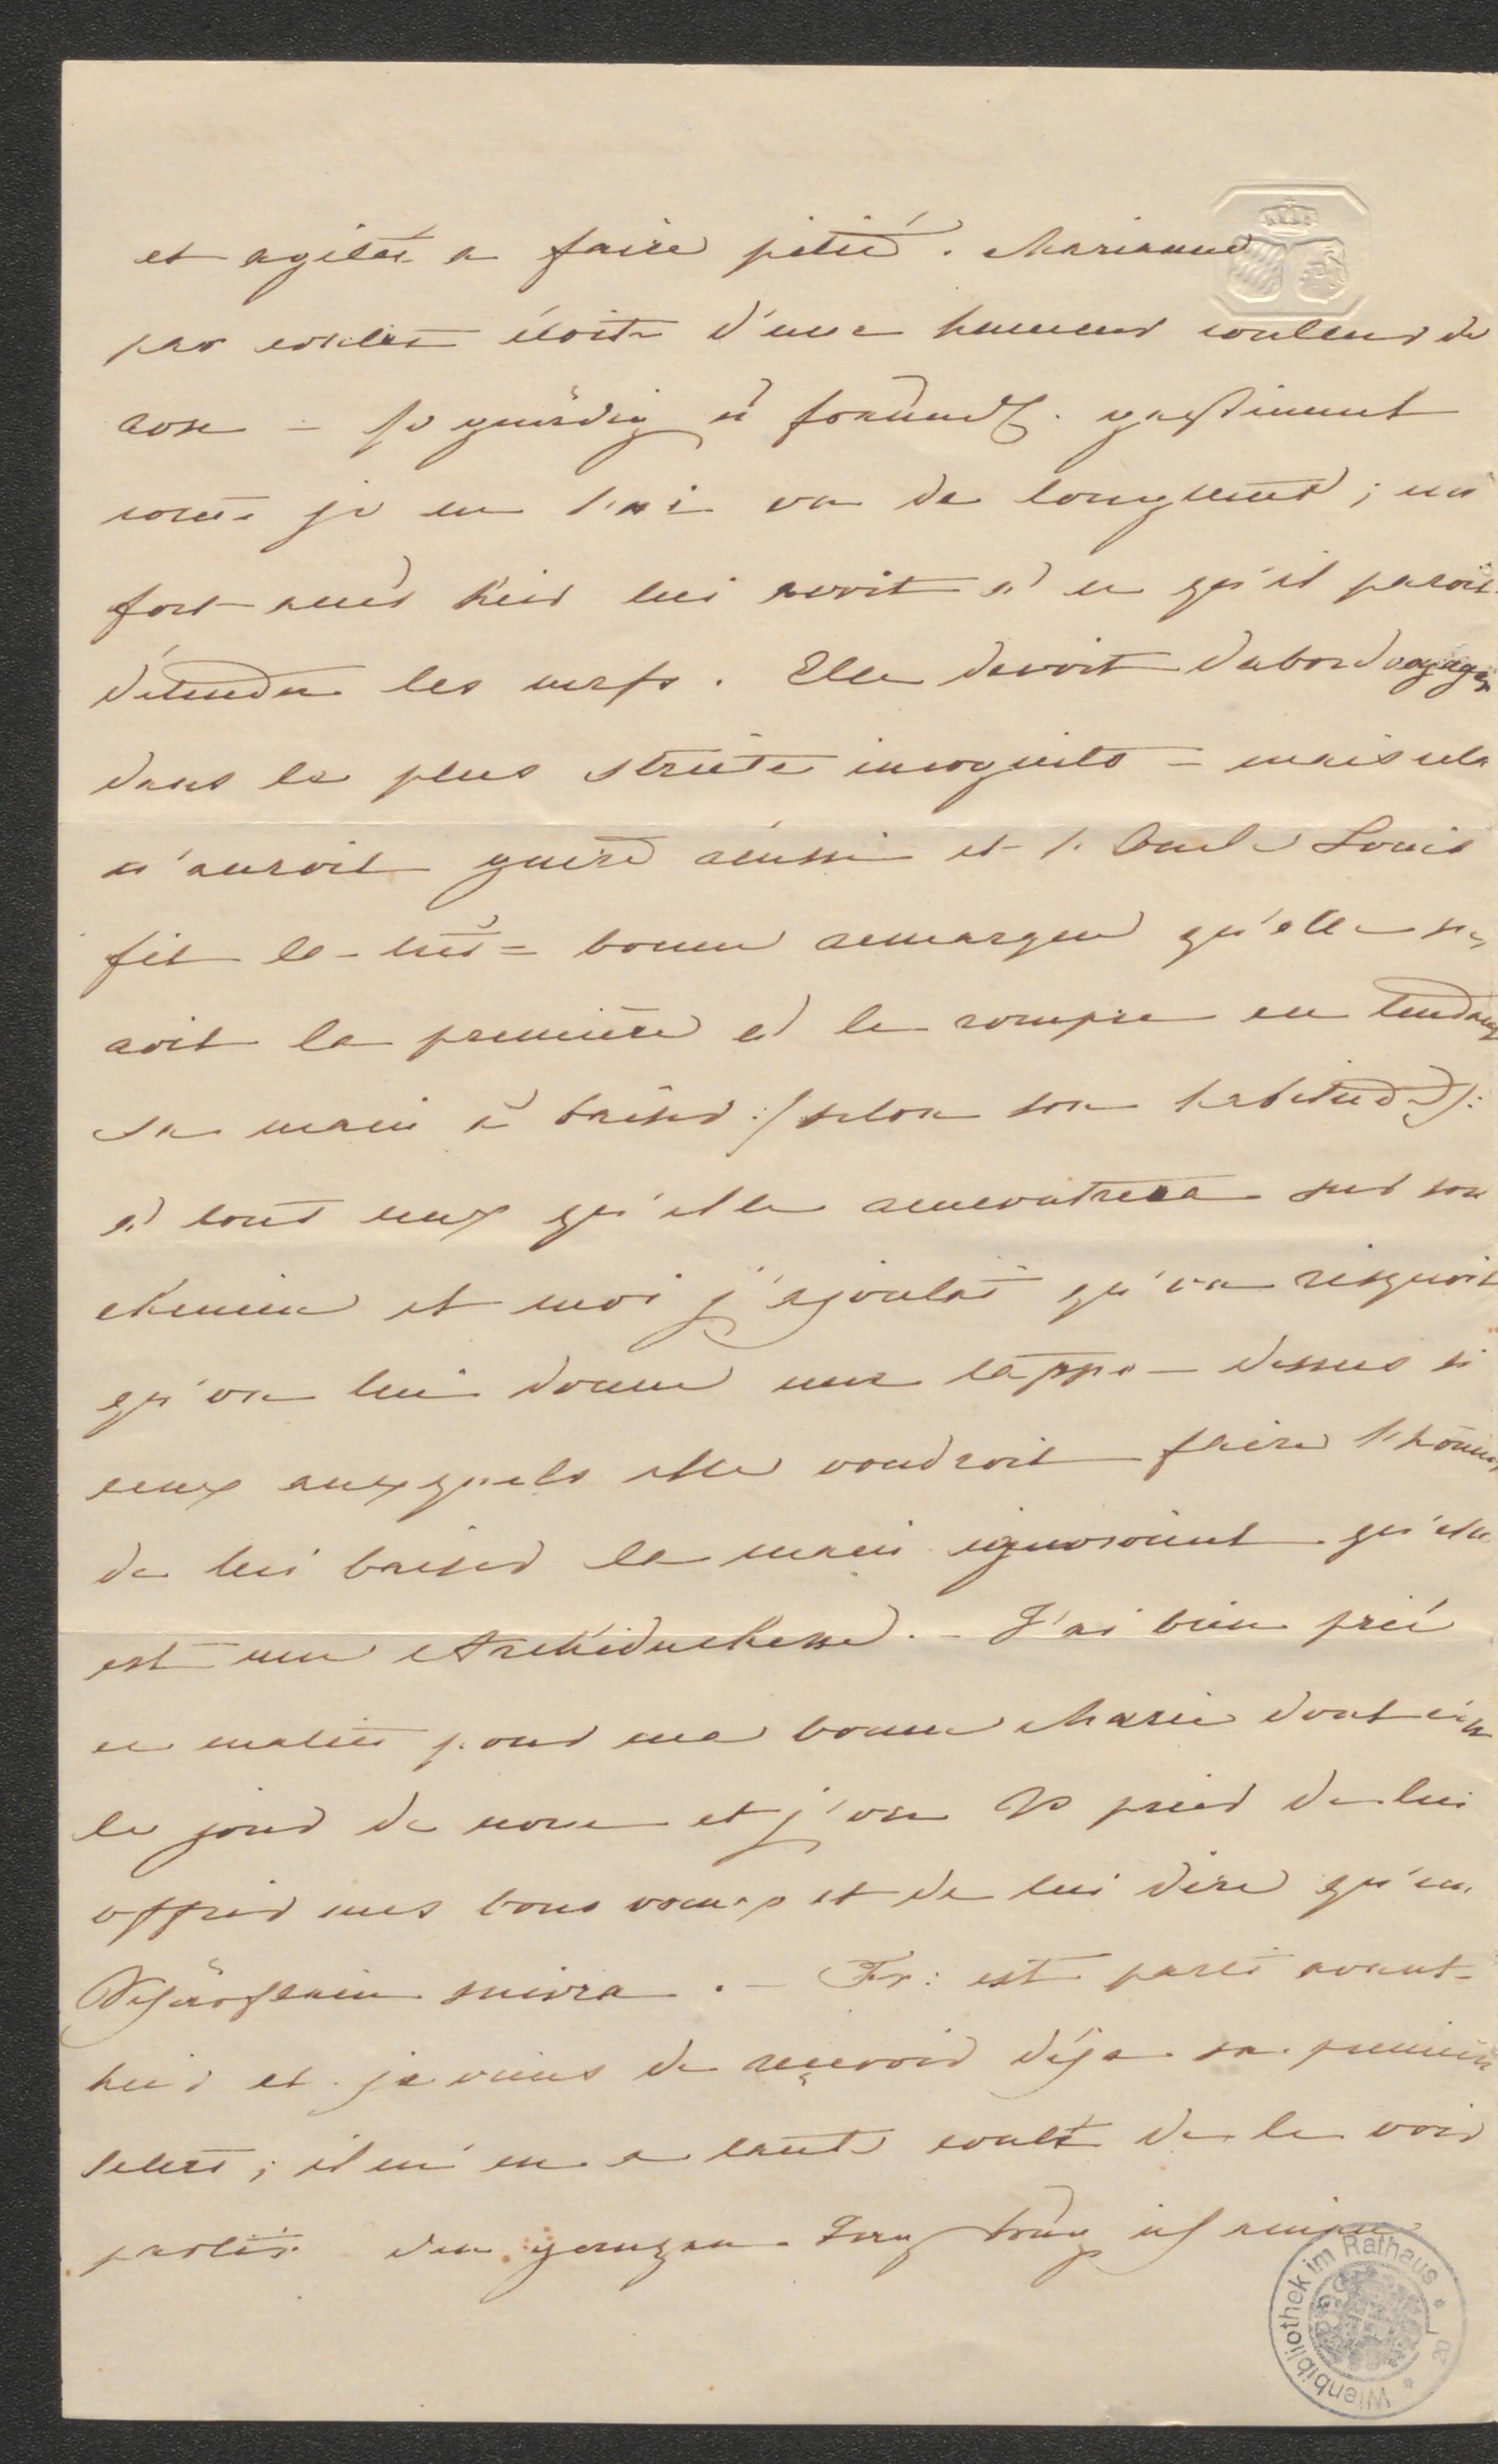 et agitée a faire pitié. Marianne
par contre étoit d'une humeur couleur de
rose – so gnädig u freundl. gestimmt
come je ne l'ai vu de longtems; un
fort accès hier lui avoit à ce qu'il paroit
détendu les nerfs. Elle devoit dabord voyager
dans le plus stricte incognito – mais cela
n'auroit guère réussi et l'oncle Louis
fit la très = bonne remarque qu'elle se=
roit la première à le rompre en tendant
sa main à baiser :/selon son habitude/:
à tous ceux qu'elle rencontrera sur son
chemin et moi j'ajoutai qu'on risquoit
qu'on lui donne une tappe dessus si
ceux auxquels elle voudroit faire l'honneur
de lui baiser la main ignoroient qu'elle
est une Archiduchesse. – J'ai bien prié
ce matin pour ma bonne Marie dont c'est
le jour de nom et j'ose Vs prier de lui
offrir mes bons voeux et de lui dire qu'un
suivra. – Fr: est parti avant-
hier et je viens de reçevoir déja sa première
lettre; il m'en a tant couté de le voir
partir. den ganzen Tag ich meine
Wienbibliothek im Rathaus